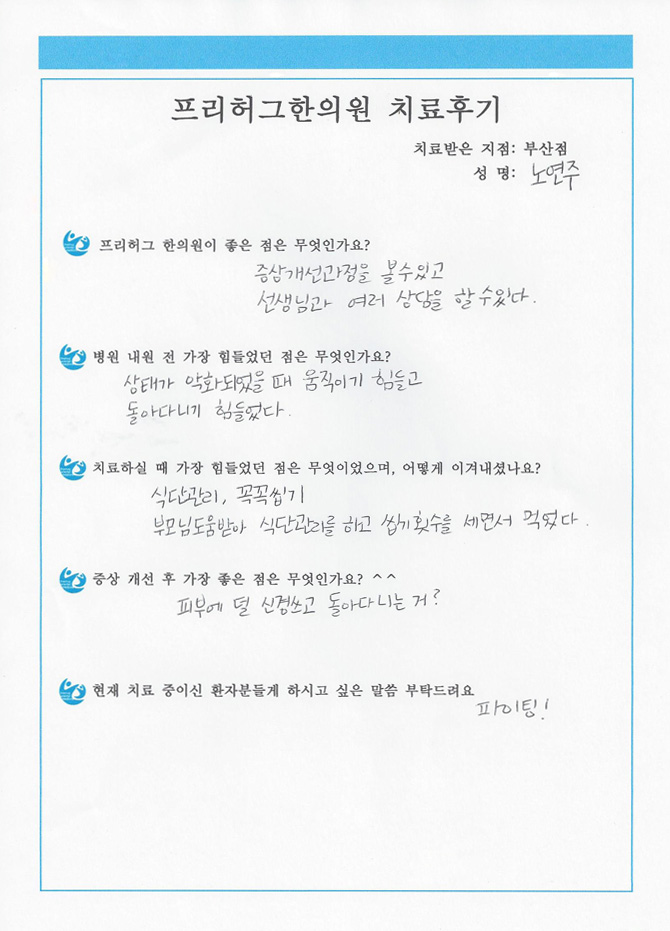 프리허그한의원 치료후기
치료받은 지점: 부산점
성 명: 노연주
프리허그 한의원이 좋은 점은 무엇인가요?
증상개선과정을 볼수있고
선생님과 여러 상담을 할수있다.
병원 내원 전 가장 힘들었던 점은 무엇인가요?
상태가 악화되었을 때 움직이기 힘들고
돌아다니기 힘들었다.
치료하실 때 가장 힘들었던 점은 무엇이었으며, 어떻게 이겨내셨나요?
식단관리, 꼭꼭씹기
부모님도움받아 식단관리를 하고 씹기횟수를 세면서 먹었다.
증상 개선 후 가장 좋은 점은 무엇인가요? ^^
피부에 덜 신경쓰고 돌아다니는 거?
현재 치료 중이신 환자분들게 하시고 싶은 말씀 부탁드려요
파이팅!